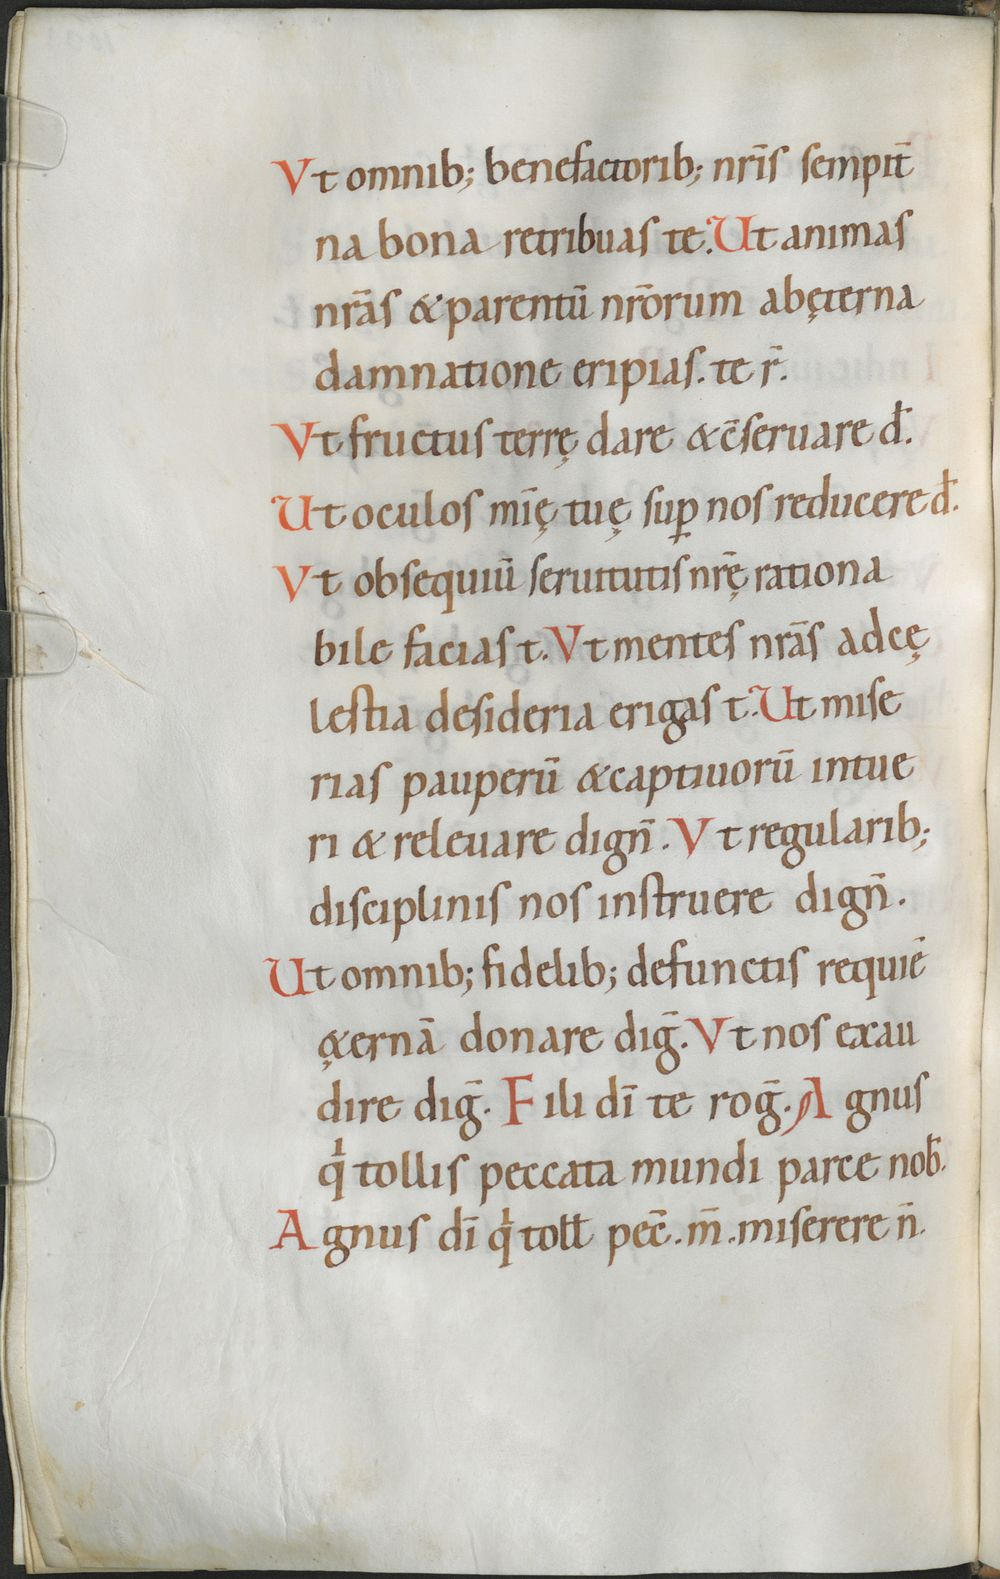 Vt omnib; benefactorib; nr̄is sempit̄
na bona retribuas te. Ut animas
nr̄as & parentū nr̄orum abęterna
damnatione eripias. te r̄.
Vt fructus terrę dare & c̄seruare d̄.
Ut oculos mīę tuę suꝑ nos reducere d̄.
Vt obsequiū seruitutis nr̄ę rationa
bile facias t. Vt mentes nr̄as adcę
lestia desideria erigas t. Ut mise
rias pauperū & captiuorū intue
ri & releuare dign̄. Vt regularib;
disciplinis nos instruere dign̄.
Ut omnib; fidelib; defunctis requiē
&̨ernā donare diḡ. Vt nos exau
dire diḡ. Fili dī te roḡ. Agnus
qͥ tollis peccata mundi parce nob̄.
Agnus dī qͥ toll̄ pec̄. m̄. miserere n̄.